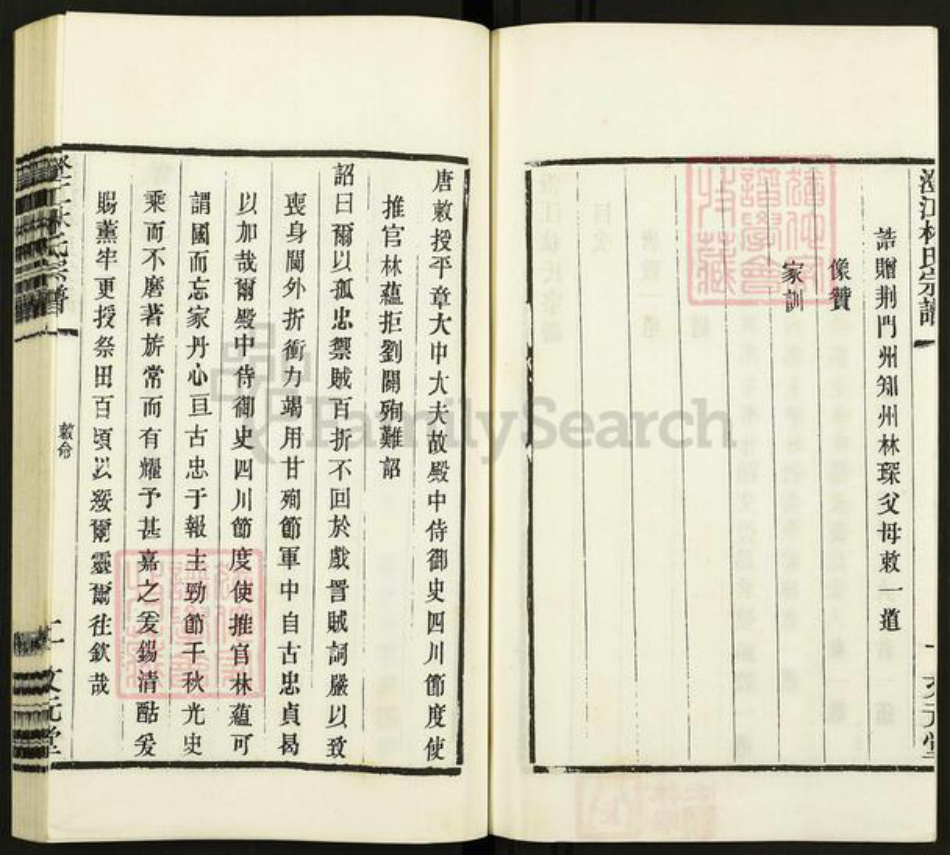 澄江林氏宗譜
誥贈荆門州知州林琛父母敕一道
像贊
家訓
一 文元堂
唐敕授平章大中大夫故殿中侍御史四川節度使
推官林蘊拒劉闢殉難詔
詔曰爾以孤忠禦賊百折不回於戲詈賊詞嚴以致
喪身閫外折衝力竭用甘殉節軍中自古忠貞曷
以加哉爾殿中侍御史四川節度使推官林蘊可
謂國而忘家丹心亘古忠于報主勁節千秋光史
乘而不磨著旂常而有耀予甚嘉之爰錫清酤爰
賜薰牢更授祭田百頃以綏爾靈爾往欽哉
澄江林氏宗譜
敕命
二 文元堂
FamilySearch